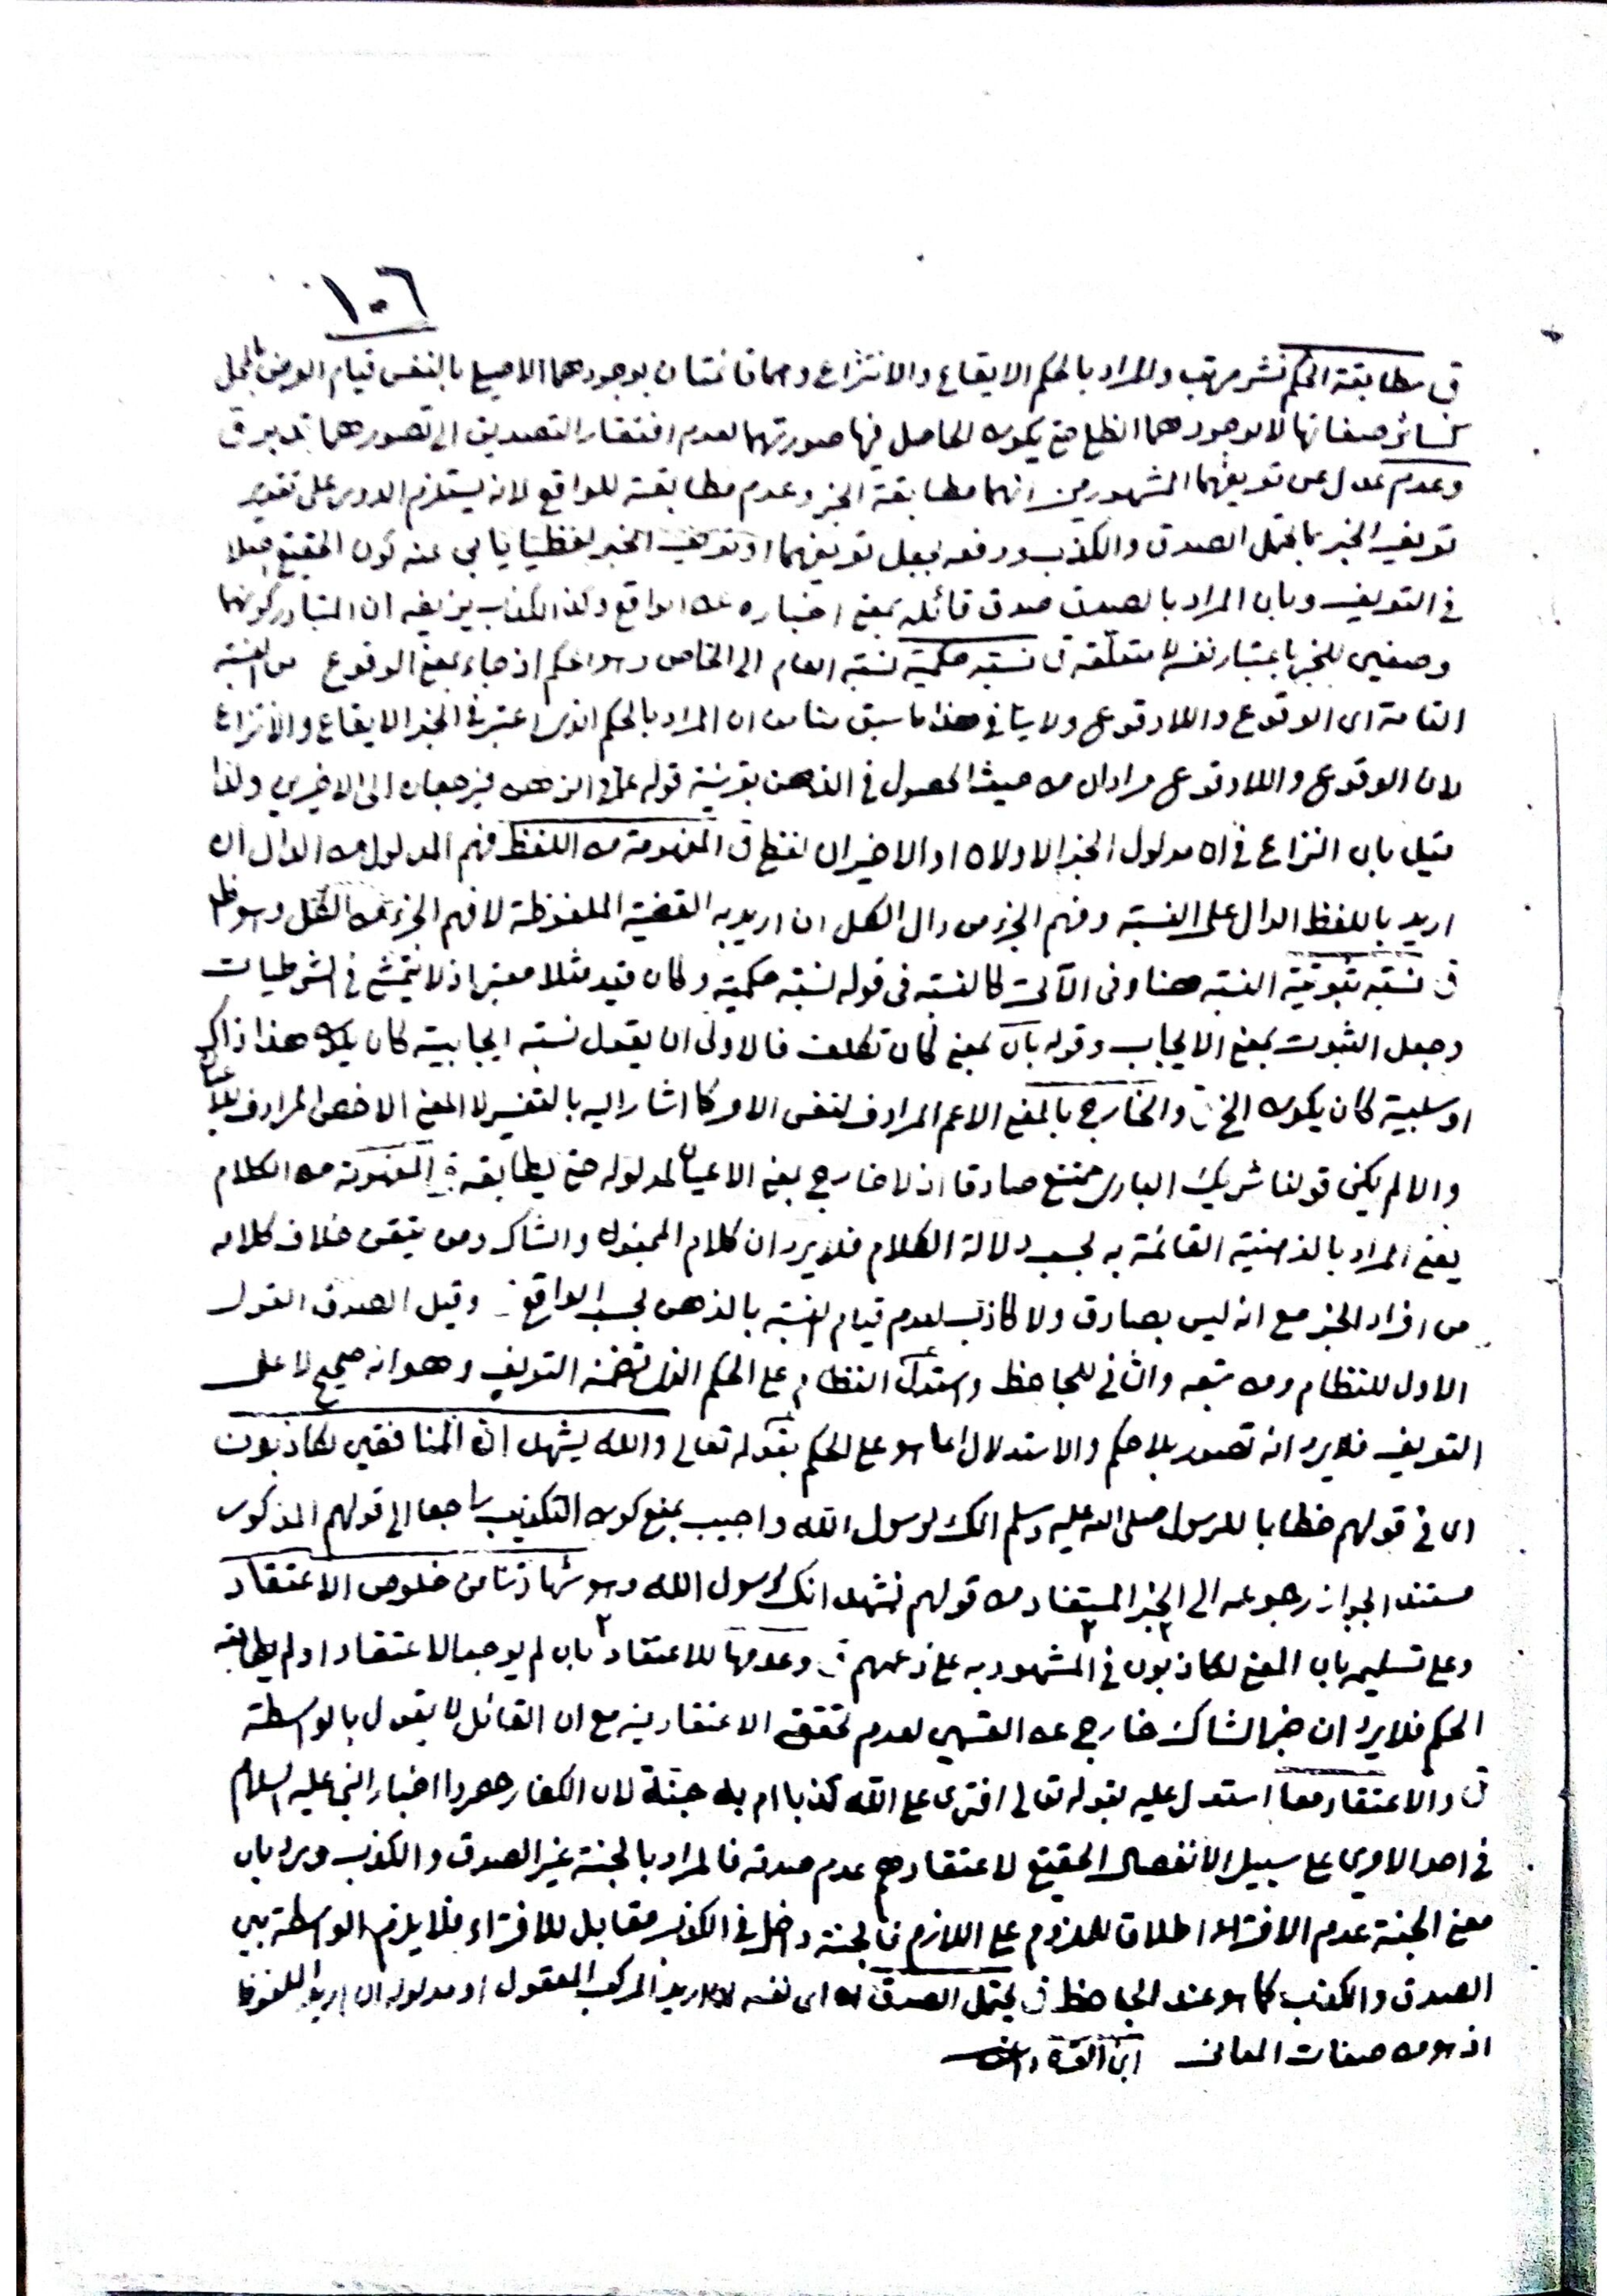 ١٠٦
ق مطابقة الحكم نشر مرتب والمراد بالحكم الايقاع والانتزاع وهما قائمتان بوجودهما الاصيل بالنفس قيام العرض بالمحل
كسائر صفاتها لا بوجودهما الظلي حتى يكون الحاصل فيها صورتهما لعدم افتقار التصديق الى تصورهما تدبر ق
وعدم عدل عن تعريفهما المشهور من انهما مطابقة الخبر وعدم مطابقته للواقع لانه يستلزم الدور على تقدير
تعريف الخبر بما يحتمل الصدق والكذب ودفعه بجعل تعريفهما او تعريف الخبر لفظيا يابى عنه كون الحقيقي اصلا
في التعريف وبان المراد بالصدق صدق قائله بمعنى اخباره عن الواقع وكذا الكذب يزيفه ان المتبادر كونهما
وصفين للخبر باعتبار نفسه لا متعلقه ق نسبة حكمية نسبة العام الى الخاص وهو الحكم اذ جاء بمعنى الوقوع من النسبة
التامة اى الوقوع واللاوقوع ولا ينافي هذا ما سبق منا من ان المراد بالحكم الذى اعتبر في الخبر الايقاع والانتزاع
لان الوقوع واللاوقوع مرادان من حيث الحصول في الذهن بقرينة قوله في الذهن فيرجعان الى الاخيرين ولذا
قيل بان النزاع في ان مدلول الخبر الاولان او الاخيران لفظي ق المفهومة من اللفظ فهم المدلول من الدال ان
اريد باللفظ الدال على النسبة وفهم الجزء من دال الكل ان اريد به القضية الملفوظة لا فهم الجزء من الكل وهو ظ
ق نسبة ثبوتية النسبة هنا وفي الآتى كالنسبة في قوله نسبة حكمية وكان قيد مثلا معتبر اذ لا يتمشى في الشرطيات
وجعل الثبوت بمعنى الايجاب وقوله بان بمعنى كان تكلف فالاولى ان يقول نسبة ايجابية كان يكون هذا ذاك
او سلبية كان يكون الخ ق والخارج بالمعنى الاعم المرادف لنفس الامر كما اشار اليه بالتفسير لا المعنى الاخص المرادف للاعيان
والا لم يكن قولنا شريك البارى ممتنع صادقا اذ لا خارج بمعنى الاعيان لمدلوله حتى يطابقه ق المفهومة من الكلام
يعنى المراد بالذهنية القائمة به بحسب دلالة الكلام فلا يرد ان كلام المجنون والشاك ومن يتيقن خلاف كلامه
من افراد الخبر مع انه ليس بصادق ولا كاذب لعدم قيام النسبة بالذهن بحسب الواقع ق وقيل الصدق القول
الاول للنظام ومن تبعه والثاني للجاحظ واستدل النظام على الحكم الذى تضمنه التعريف وهو انه صحيح لا على
التعريف فلا يرد انه تصور بلا حكم والاستدلال انما هو على الحكم بقوله تعالى والله يشهد ان المنافقين لكاذبون
اى في قولهم خطابا للرسول صلى الله عليه وسلم انك لرسول الله واجيب بمنع كون التكذيب راجعا الى قولهم المذكور
مستندا لجواز رجوعه الى الخبر المستفاد من قولهم نشهد انك لرسول الله وهو شهادتنا من خلوص الاعتقاد
وعلى تسليمه بان المعنى لكاذبون في المشهود به على زعمهم ق وعدمها للاعتقاد بان لم يوجد الاعتقاد او لم يطابقه
الحكم فلا يرد ان خبر الشاك خارج عن القسمين لعدم تحقق الاعتقاد فيه مع ان القائل لا يقول بالواسطة
ق والاعتقاد معا استدل عليه بقوله تعالى افترى على الله كذبا ام به جنة لان الكفار حصروا اخبار النبي عليه السلام
في احد الامرين على سبيل الانفصال الحقيقي لاعتقادهم عدم صدقه فالمراد بالجنة غير الصدق والكذب ورد بان
معنى الجنة عدم الافتراء اطلاقا للملزوم على اللازم فالجنة داخل في الكذب مقابل للافتراء فلا يلزم الواسطة بين
الصدق والكذب كما هو عند الجاحظ ق يحتمل الصدق اى نفسه ان اريد المركب المعقول او مدلوله ان اريد الملفوظ
اذ هو من صفات المعانى ابن القره داغى